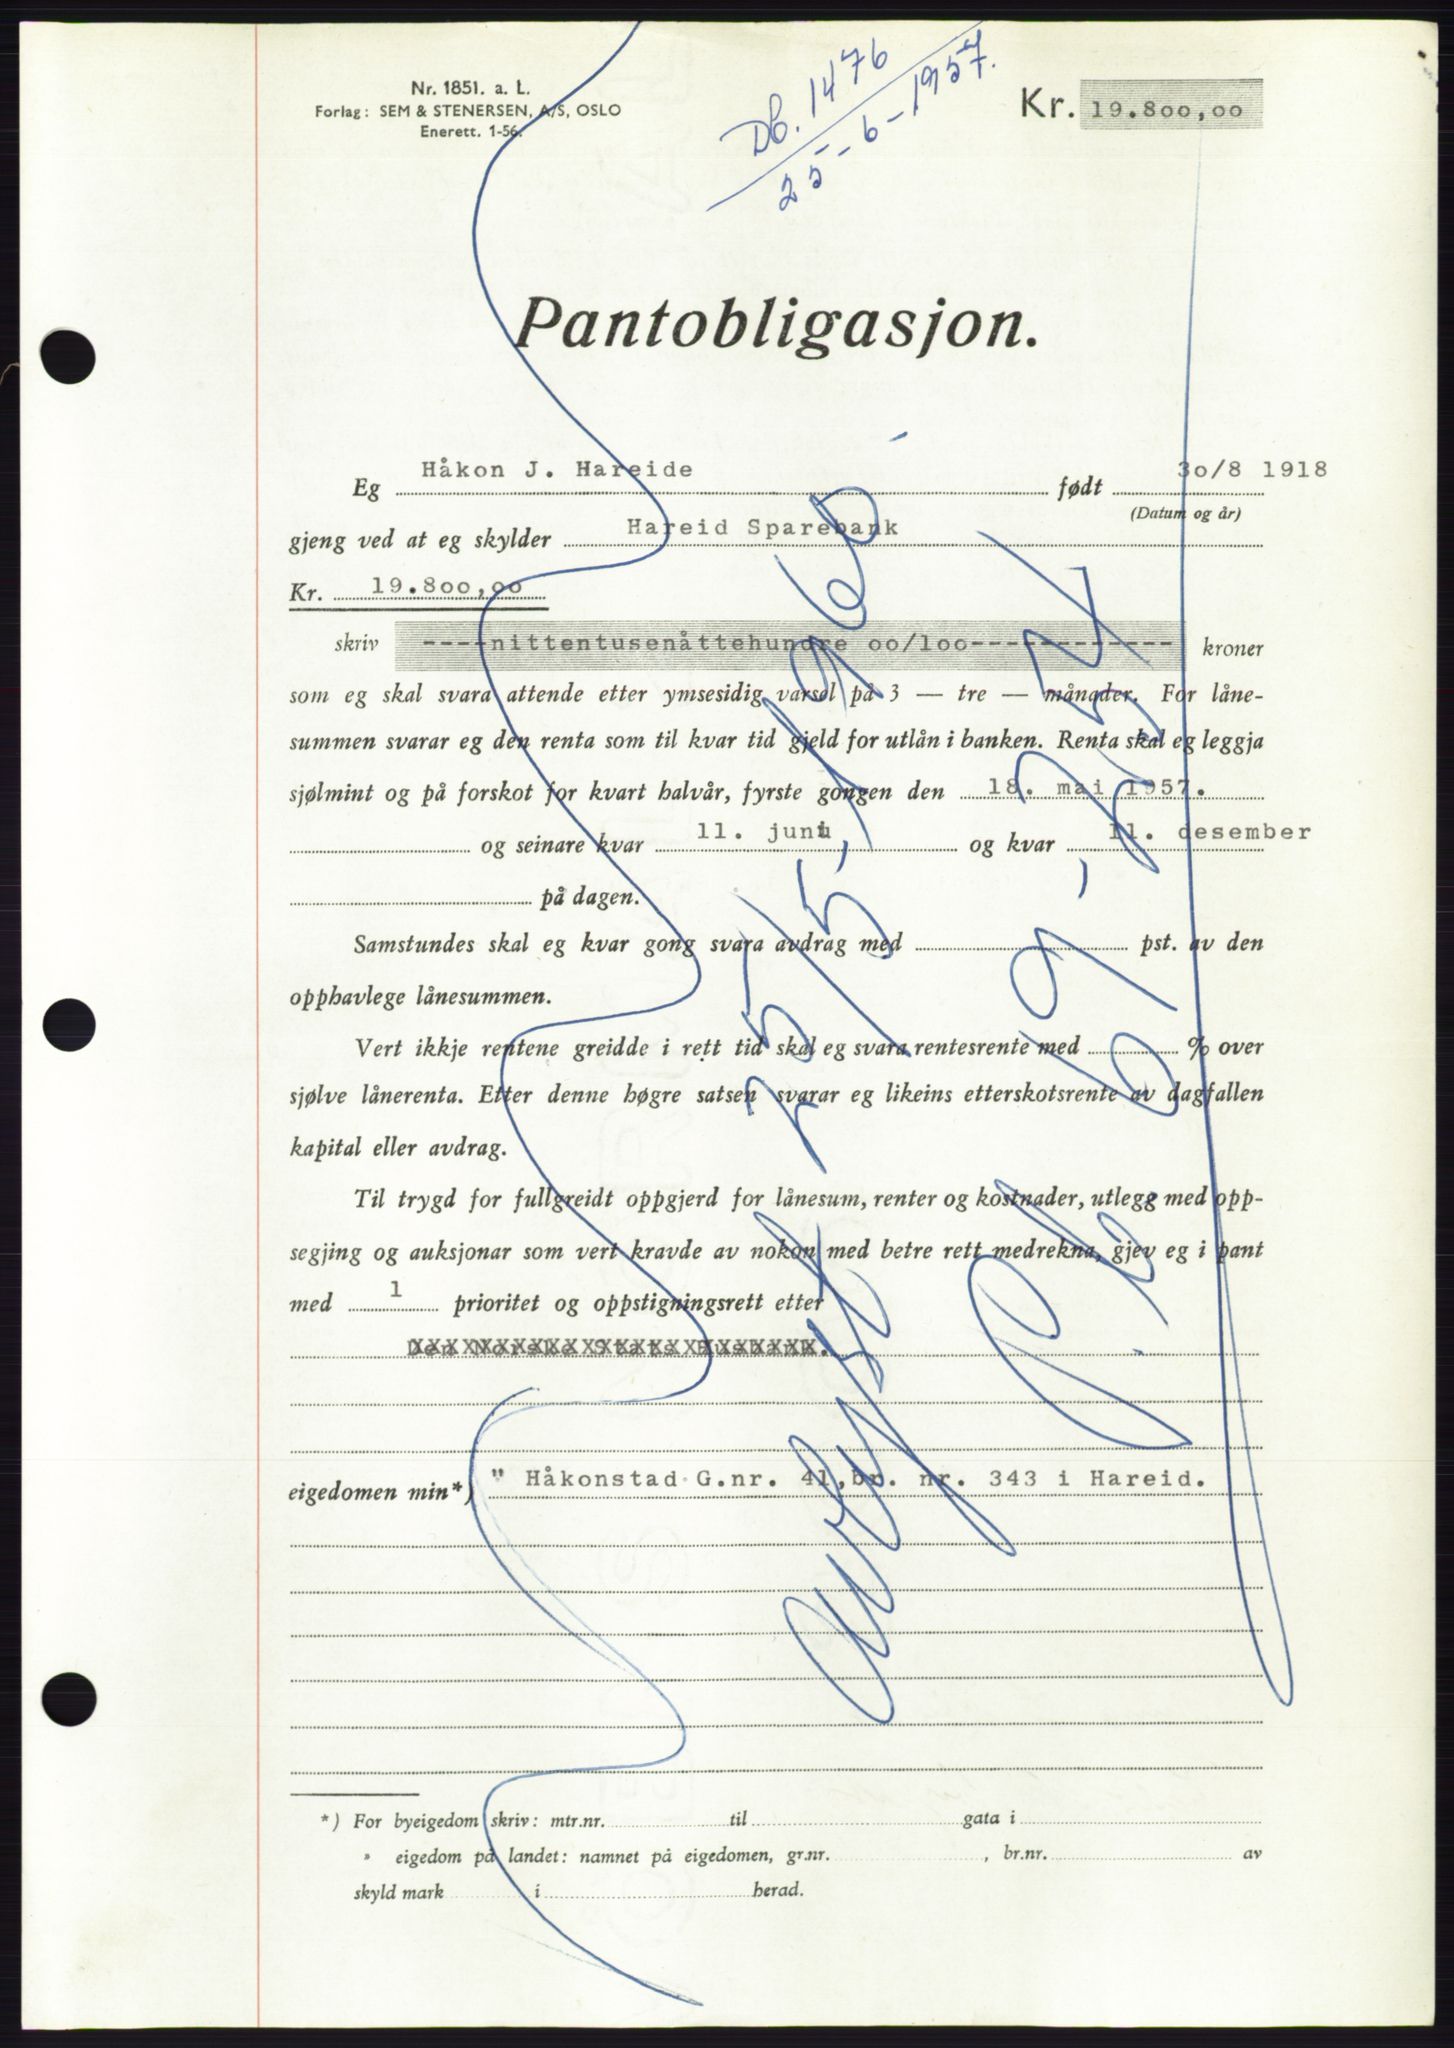 Nr. 1851. a. L.
Forlag: SEM & STENERSEN, A/S, OSLO
Enerett. 1-56.
Db. 1476
25-6-1957.
Kr. 19.800,00
Pantobligasjon.
Eg Håkon J. Hareide født 30/8 1918
(Datum og år)
gjeng ved at eg skylder Hareid Sparebank
Kr. 19.800,00
skriv ----nittentusenåttehundre oo/loo------------ kroner
som eg skal svara attende etter ymsesidig varsel på 3 — tre — månader. For låne-
summen svarar eg den renta som til kvar tid gjeld for utlån i banken. Renta skal eg leggja
sjølmint og på forskot for kvart halvår, fyrste gongen den 18. mai 1957.
og seinare kvar 11. juni og kvar 11. desember
på dagen.
Samstundes skal eg kvar gong svara avdrag med pst. av den
opphavlege lånesummen.
Vert ikkje rentene greidde i rett tid skal eg svara rentesrente med % over
sjølve lånerenta. Etter denne høgre satsen svarar eg likeins etterskotsrente av dagfallen
kapital eller avdrag.
Til trygd for fullgreidt oppgjerd for lånesum, renter og kostnader, utlegg med opp-
segjing og auksjonar som vert kravde av nokon med betre rett medrekna, gjev eg i pant
med 1 prioritet og oppstigningsrett etter
Den Norske Stats Husbank.
eigedomen min*) " Håkonstad G.nr. 41,br. nr. 343 i Hareid.
avlyst 25/5-1960
*) For byeigedom skriv: mtr.nr. til gata i
" eigedom på landet: namnet på eigedomen, gr.nr. , br.nr. av
skyld mark i herad.